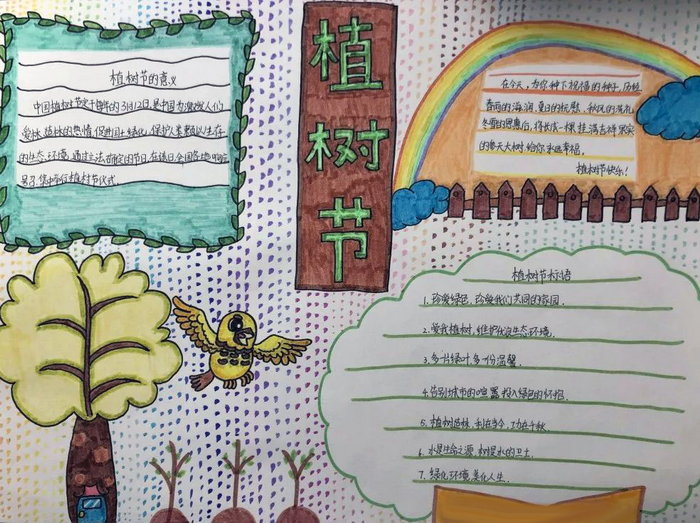 植树节
植树节的意义
中国植树节定于每年的3月12日,是中国为激发人们
爱林、造林的热情,促进国土绿化,保护人类赖以生存
的生态环境,通过立法确定的节日,在该日全国各地
集中举行植树节仪式。
在今天,为你种下祝福的种子,历经
春雨的滋润、夏日的抚慰、秋风的洗礼、
冬雪的恩惠后,将长成一棵挂满吉祥果实
的参天大树,给你永远幸福。
植树节快乐!
植树节标语
1.珍爱绿色,珍爱我们共同的家园.
2.爱我植树,维护优良生态环境.
3.多一片绿叶,多一份温馨.
4.告别城市的喧嚣,投入绿色的怀抱.
5.植树造林,利在当今,功在千秋.
6.水是生命之源,树是水的卫士.
7.绿化环境,美化人生.